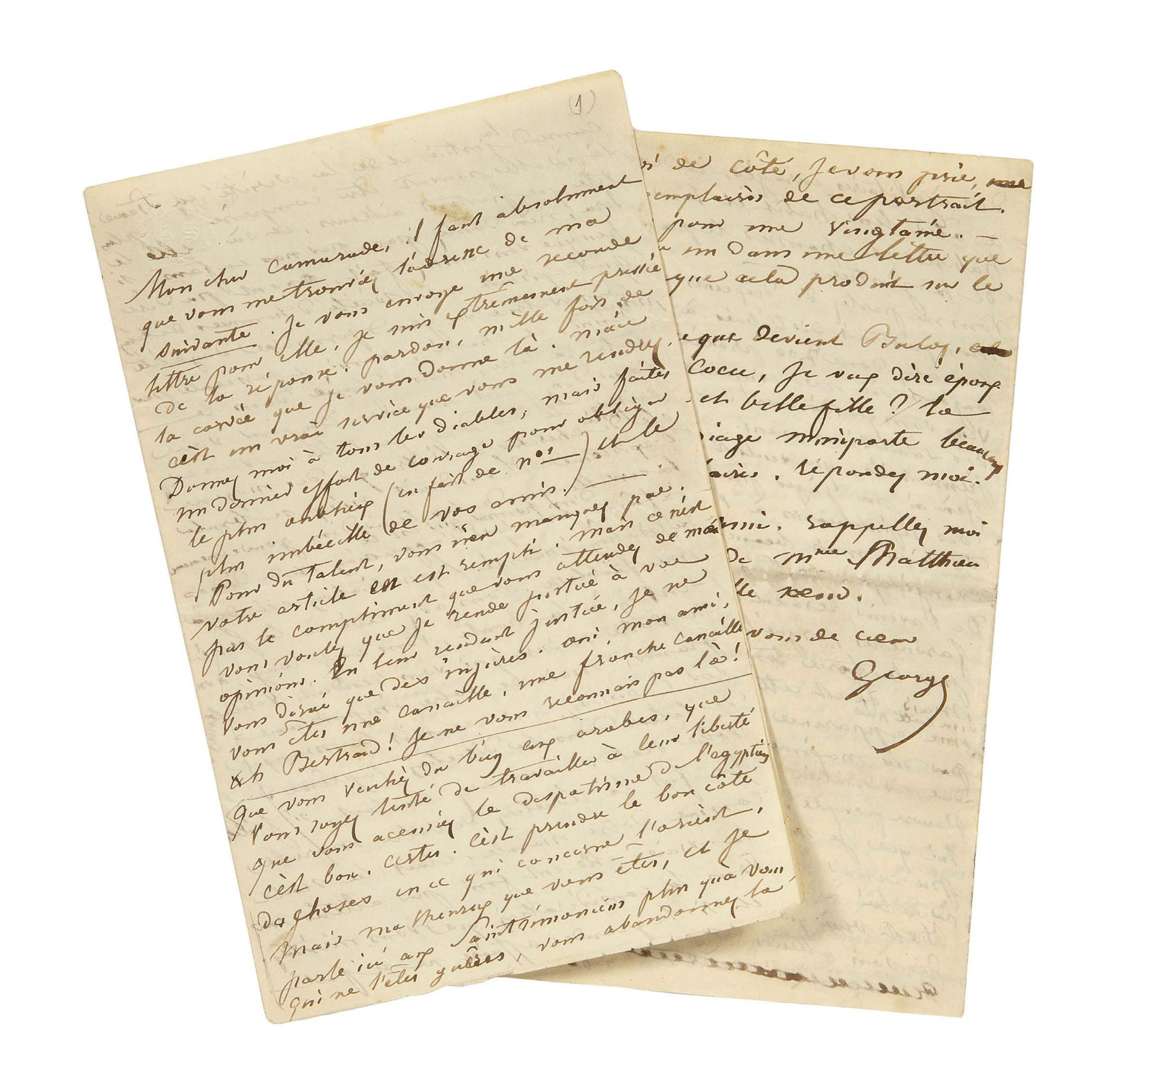 (1)
Mon cher camarade, il faut absolument
que vous me trouviez l'adresse de ma
suivante. Je vous envoye une seconde
lettre pour elle, je suis extrêmement pressée
de la réponse. pardon, mille fois de
la corvée que je vous donne là. mais
c'est un vrai service que vous me rendez.
Donnez moi à tous les diables, mais faites
un dernier effort de courage pour obliger
le plus (en fait de nos) et le
plus imbécille de vos amis.
Pour du talent, vous n'en manquez pas.
votre article en est rempli. mais ce n'est
pas le compliment que vous attendez de moi
vous voulez que je rende justice à vos
opinions. En leur rendant justice, je ne
vous dirai que des injures. oui, mon ami,
vous êtes une canaille, une franche canaille
ah Bertrand! Je ne vous reconnais pas là!
Que vous vouliez du bien aux arabes, que
vous soyez tenté de travailler à leur liberté
que vous acceptiez le despotisme de l'egyptien
c'est bon. certes. c'est prendre le bon côté
des choses en ce qui concerne l'orient.
Mais malheureux que vous êtes, et je
parle ici aux Saintsimoniens plus qu'à vous
qui ne l'êtes guères, vous abandonnez la
de côté, je vous prie,
exemplaires de ce portrait.
pour une vingtaine. —
un dans une lettre que
que cela produit sur le
que devient Buloz,
cocu, je veux dire époux
et belle fille? la
m'importe beaucoup
repondez moi.
rappellez moi
de Mme Matthieu
vous de cœur
George